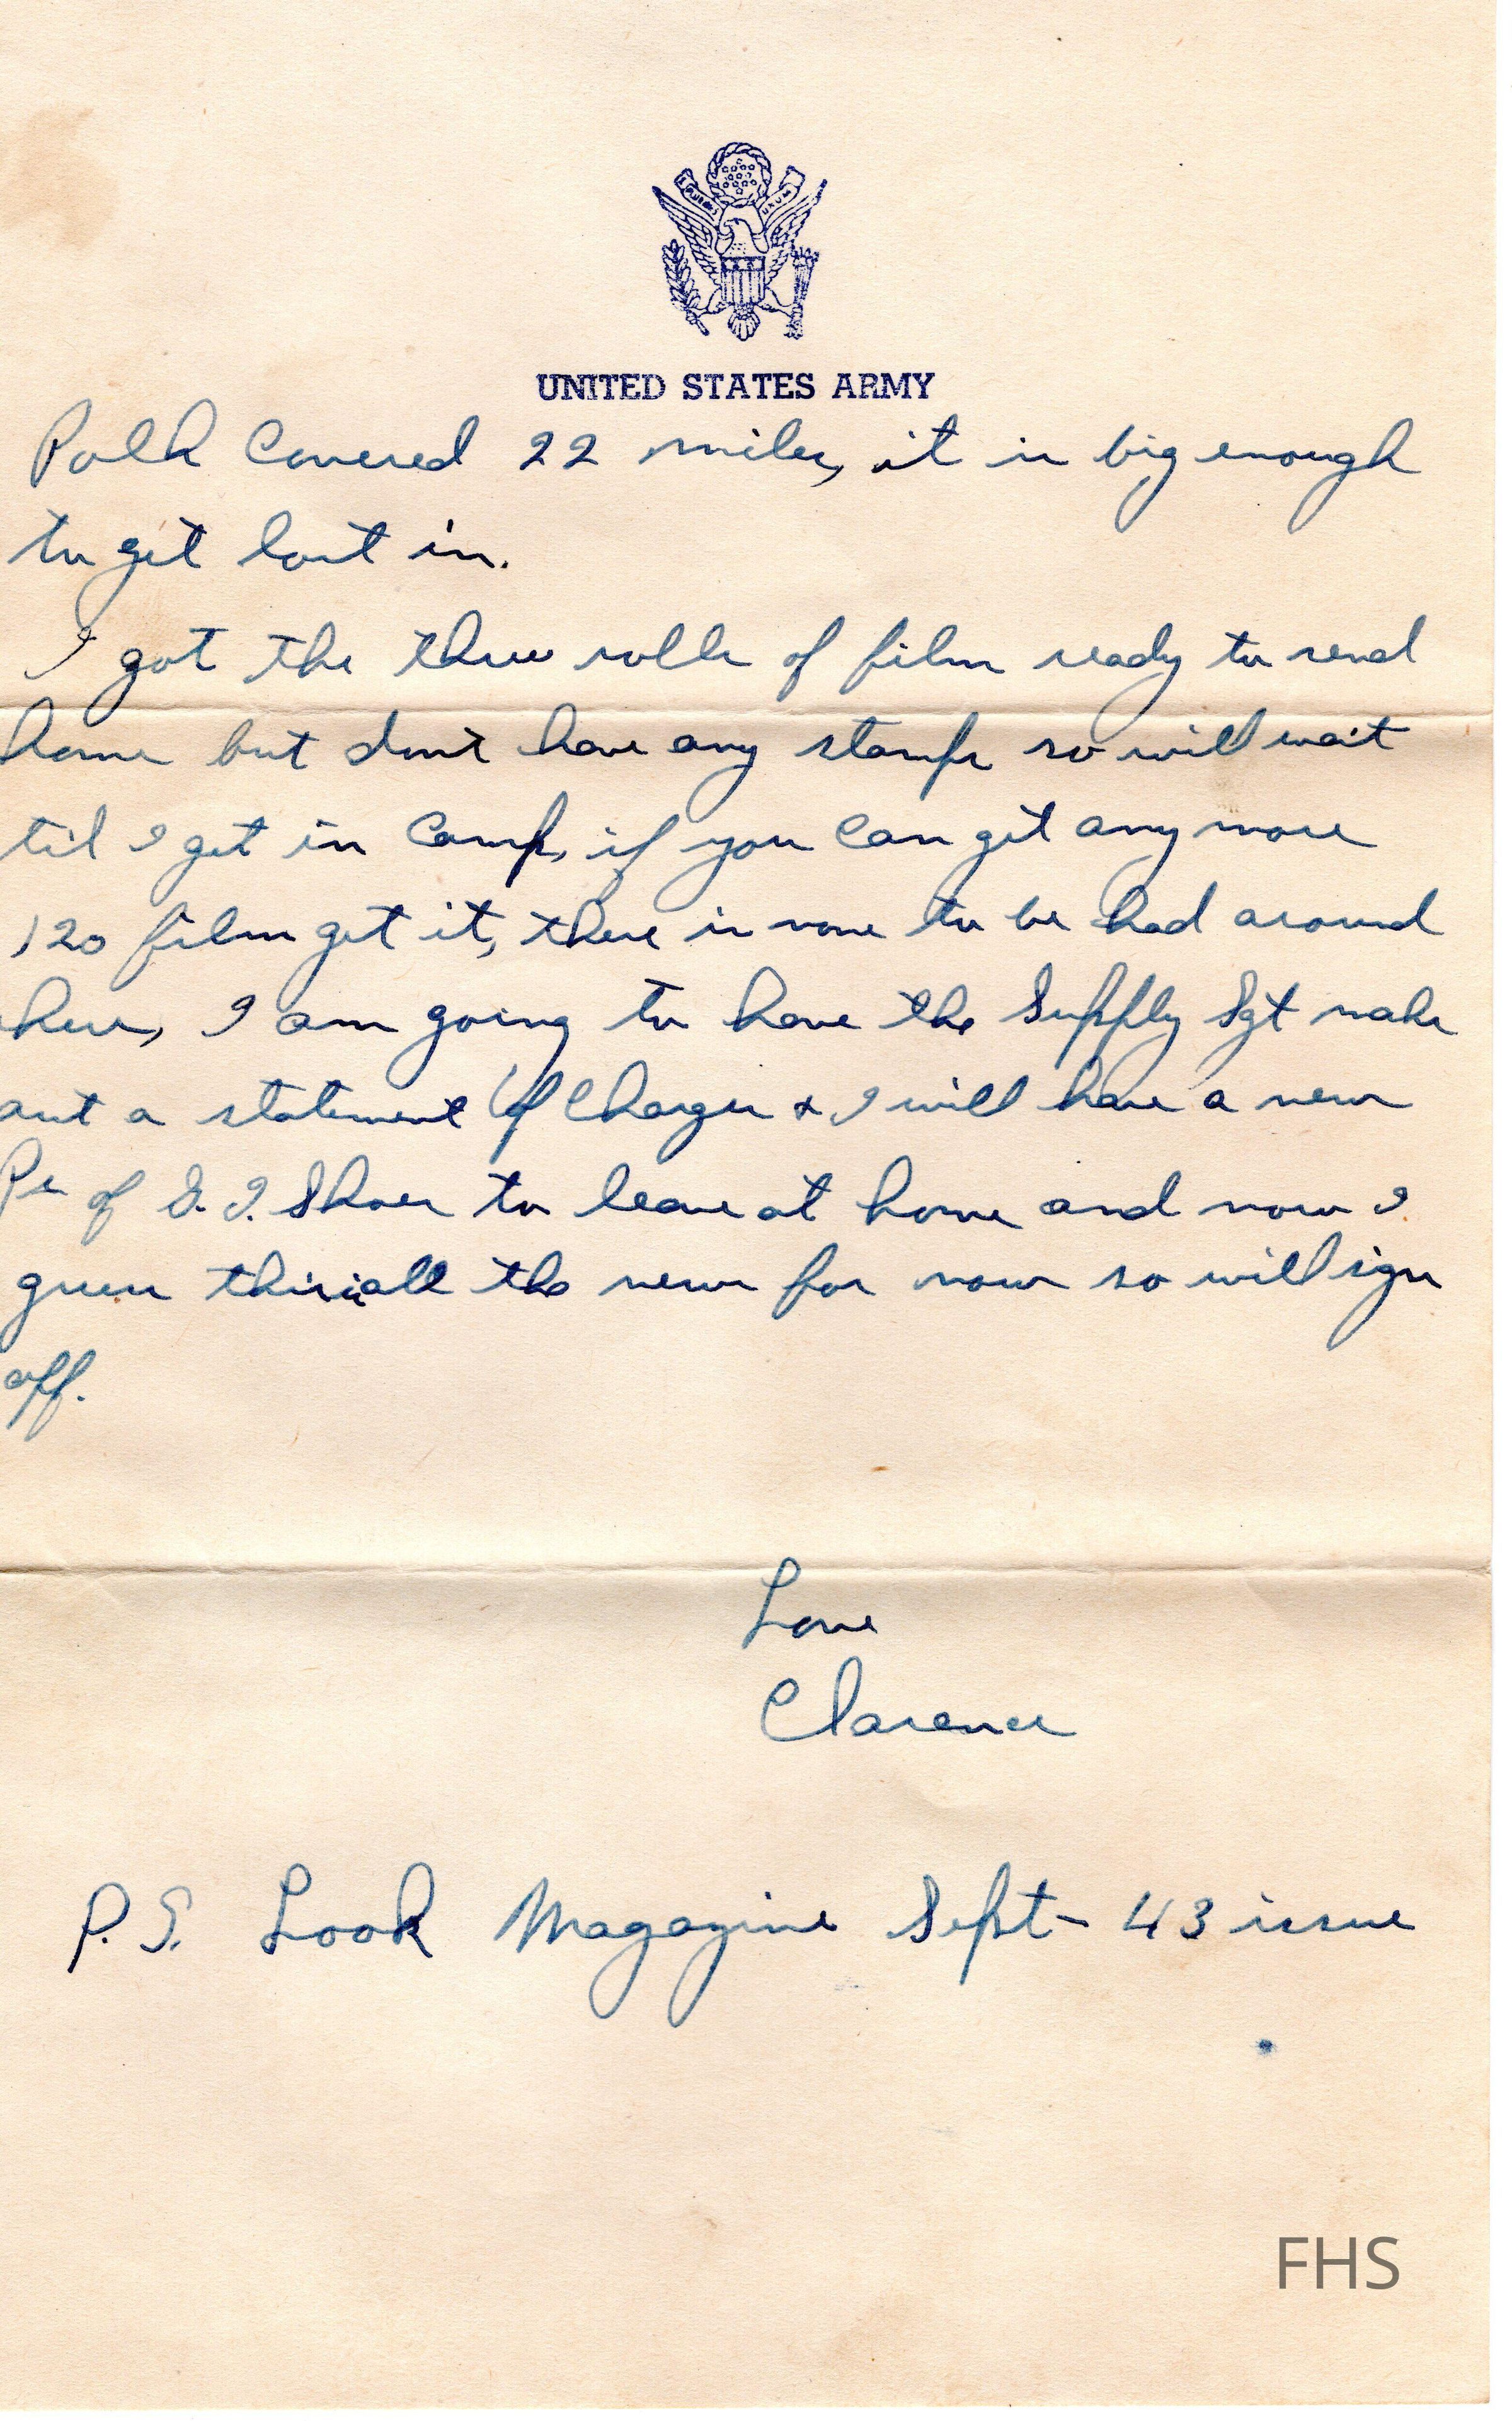 E PLURIBUS UNUM
UNITED STATES ARMY
Polk Covered 22 miles, it is big enough
to get lost in.
I got the three rolls of film ready to send
home but don't have any stamps so will wait
til I get in Camp, if you can get any more
120 film get it, there is none to be had around
here, I am going to have the Supply Sgt make
out a statement of Charges & I will have a new
Pr of G. I. Shoes to leave at home and now I
guess this is all the news for now so will sign
off.
Love
Clarence
P.S. Look Magazine Sept - 43 issue
FHS